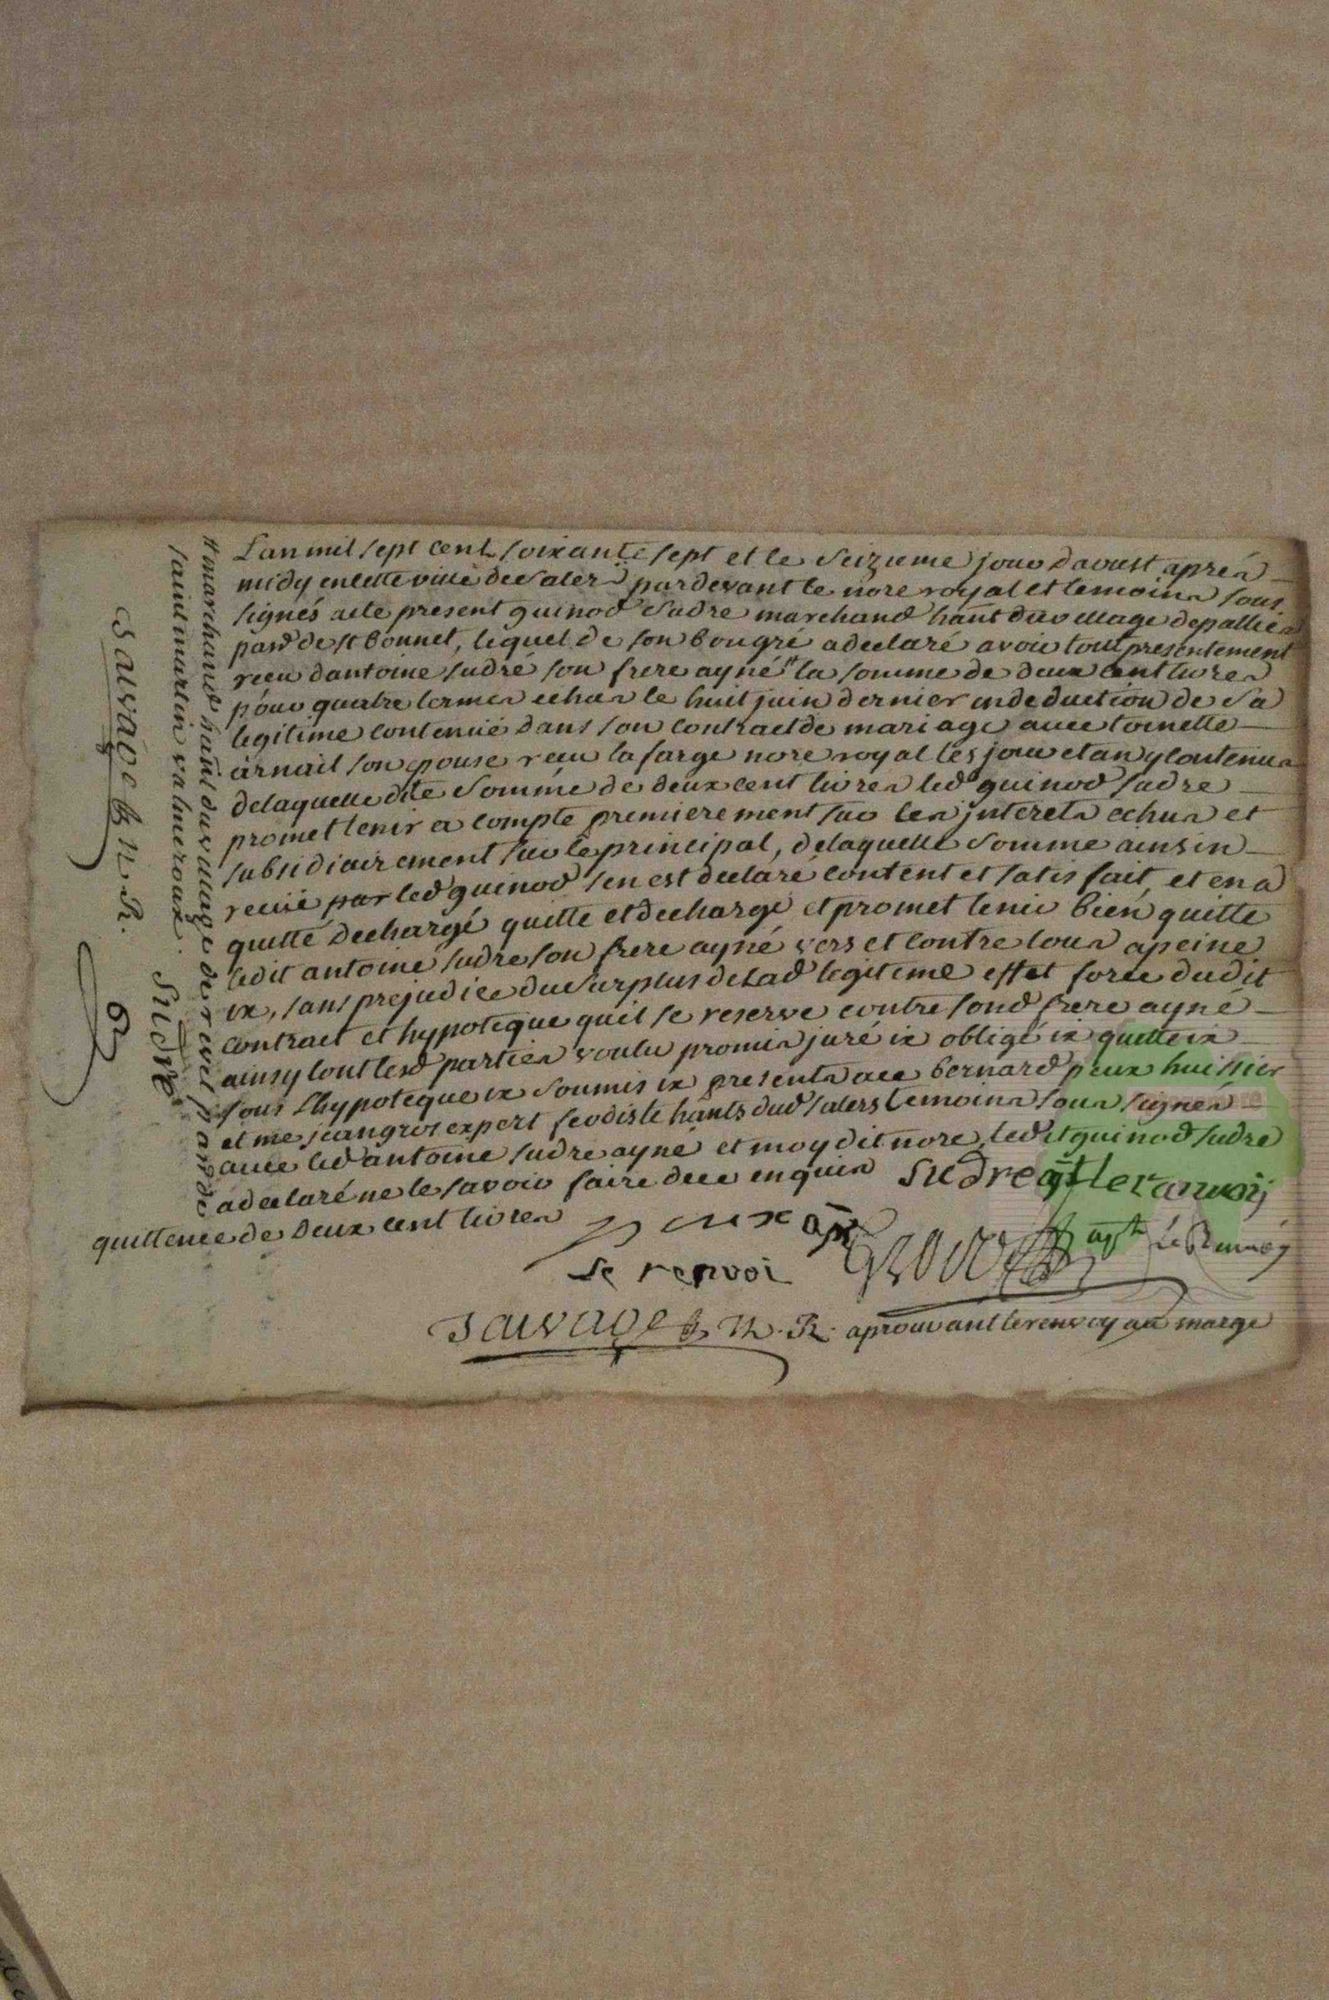 L'an mil sept cent soixante sept et le seizieme jour daoust aprés
midy en cette ville de Salers pardevant le nore royal et temoins sous
signés a ete present guinod Sudre marchand hant du village depallies
parse de st Bonnet, lequel de son bongré a declaré avoir tout presentement
receu dantoine sudre son frere ayné # la somme de deux cent livres
pour quatre termes echus le huit juin dernier en deduction de sa
legitime contenue dans son contract de mariage avec toinette
arnail son epouse receu lafarge nore royal les jour et an y contenus
delaquelle dite Somme de deux cent livres led guinod sudre
promet tenir a compte premierement sur les jnterets echus et
subsidiairement sur le principal, delaquelle Somme ainsin
receüe par led guinod sen est declaré content et satisfait, et en a
quitté dechargé quitte et decharge et promet tenir bien quitte
ledit antoine sudre son frere ayné vers et contre tous apeine
ix, sans prejudice du Surplus de lad legitime effet force dudit
contract et hypoteque quil se reserve contre sond frere ayné
ainsy tout lesd parties voulu promis juré ix obligé ix quitte ix
sous lhypoteque ix soumis ix presents ace bernard peux huissier
et me jean gros expert feodiste hants dud salers temoins sous signés
avec led antoine sudre ayné et moy dit nore ledit guinod sudre
a declaré ne le savoir faire dece enquis sudre apt le ranvoij
quittence de deux cent livres
peux apt
le renvoi
Gros apt le Renvoy
Sauvage N. R. aprouvant le renvoy au marge
# marchand hant du village de revel parse de
saint martin valmeroux. Sudre
Sauvage N. R.